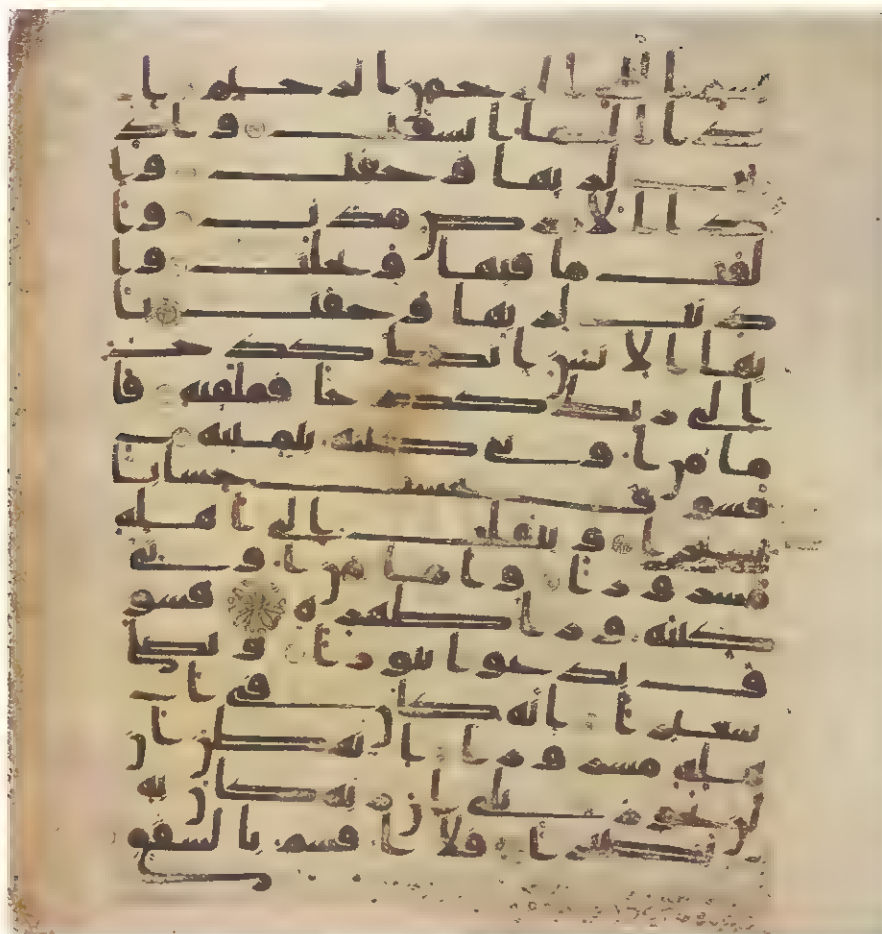 بسم الله الرحمن الرحيم ا
ذا السما انشقت واذ
نت لربها وحقت وا
ذا الارض مدت وا
لقت ما فيها وتخلت وا
ذنت لربها وحقت يا
يها الانسن انك كدح
الى ربك كدحا فملقيه فا
ما من اوتى كتبه بيمينه
فسوف يحسب حسابا
يسيرا وينقلب الى اهله
مسرورا واما من اوتى
كتبه ورا ظهره فسو
ف يدعوا ثبورا ويصلى
سعيرا انه كان فى ا
هله مسرورا انه ظن ان
لن يحور بلى ان ربه كان به
بصيرا فلا اقسم بالشفق